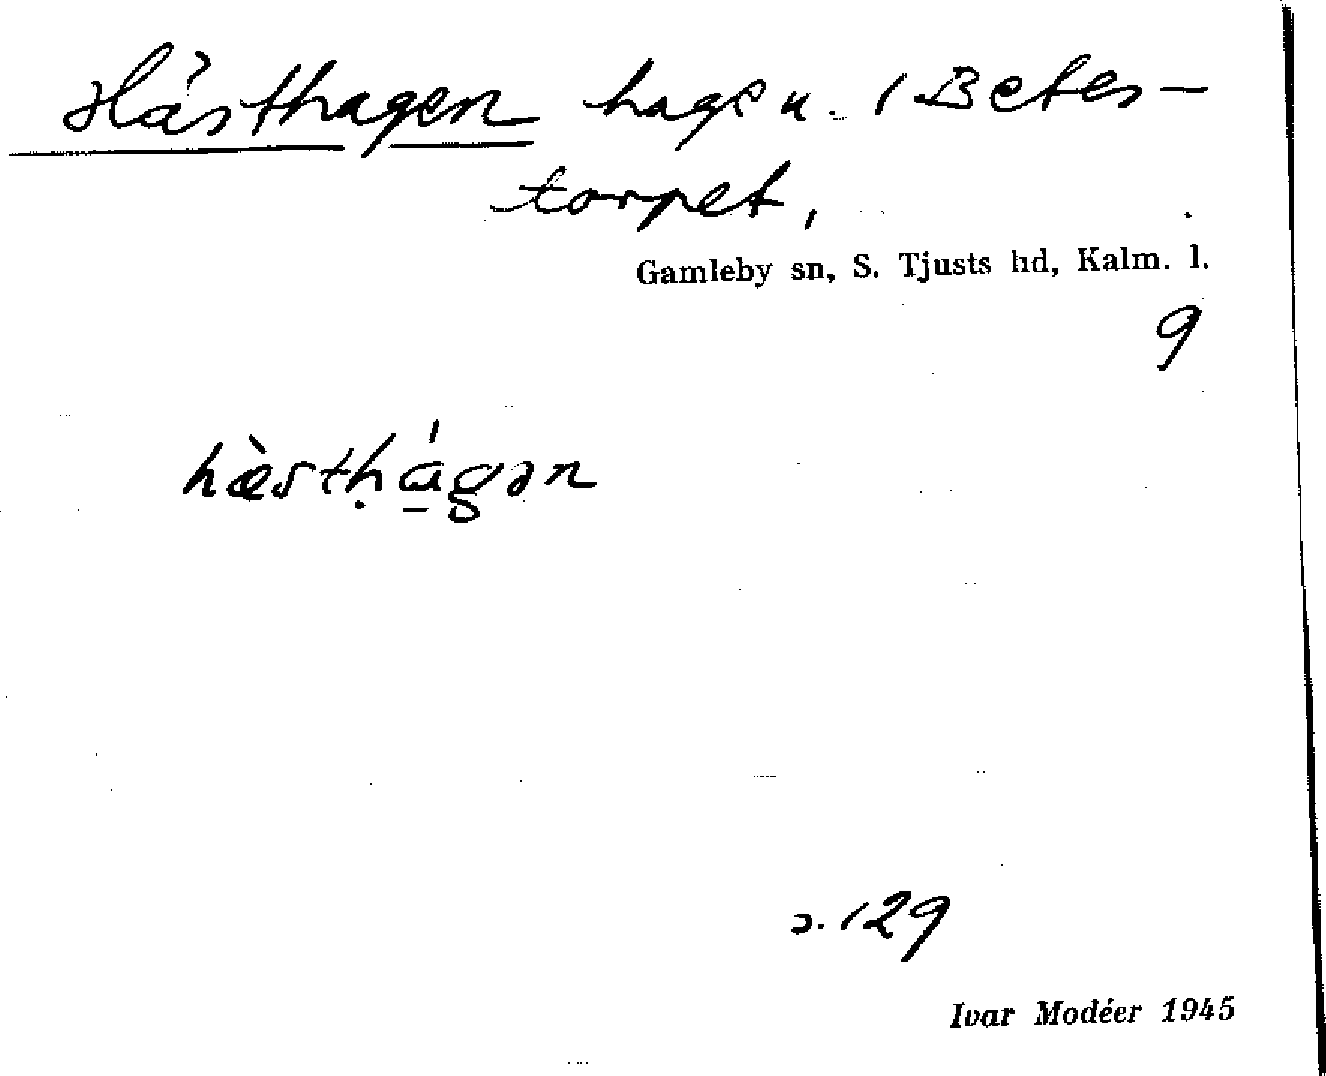 Hästhagen hage u. 1 Betes-
torpet,
Gamleby sn, S. Tjusts hd, Kalm. l.
9
hæ̀stḥá̱gən
s. 129
Ivar Modéer 1945